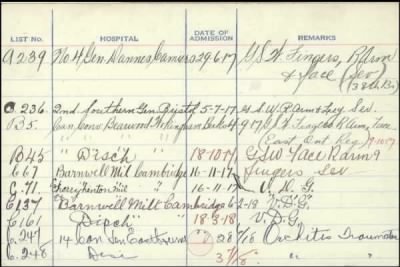 LIST No. HOSPITAL DATE OF ADMISSION REMARKS
A239 No 4 Gen. Dannes Camiers 29·6·17 G.S.W. Fingers, R Arm
& Face (Sev)
(38th Bn)
C.236. 2nd Southern Gen Bristol 5-7-17 G.S.W. R Arm & Sev.
B5. Can Conv Bearwood Wokingham 4·9·17 G.S.W. R Arm, Face
East Ont Reg
B45 " Disch " 18-10-17 G.S.W Face R Arm &
E67 Barnwell Milt Cambridge 16-11-17 Fingers Sev
C.71. Cherry Hinton Mil " " 16-11-17 V.D.G.
C137 Barnwell Milt Cambridge 6-2-18 "V.D.G."
C161 " Disch " 18-3-18 V.D.G.
C.247 14 Can Gen Eastbourne 28/7/18 Orchitis Traumatic
C.248 Disc 31/7/18 "